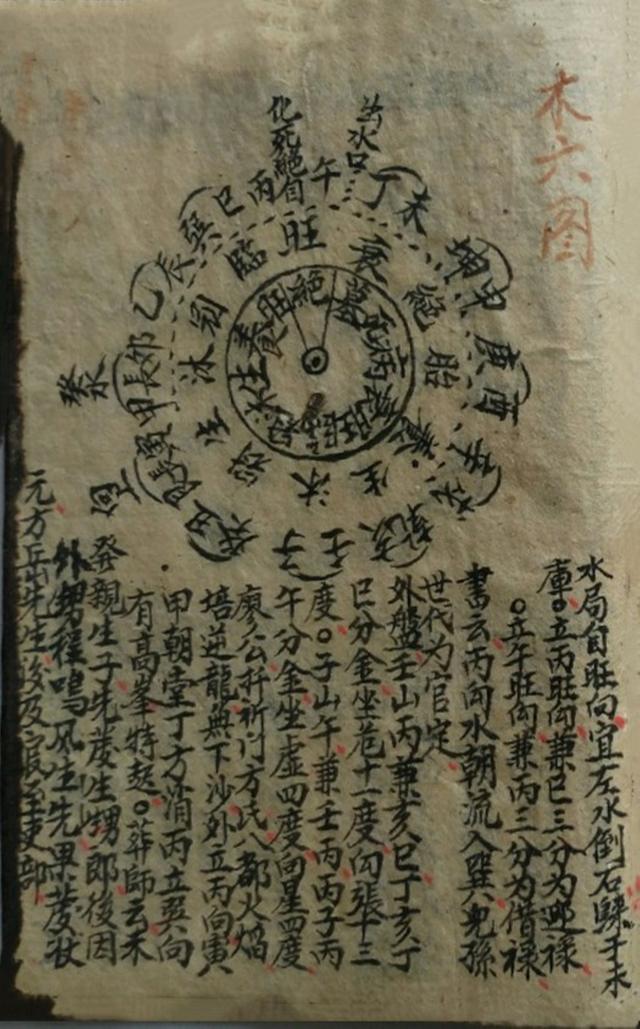 木六图
水局自旺向宜左水倒右歸于未
庫。立丙旺向兼巳三分為迎禄
。立午旺向兼丙三分為借禄
書云丙向水朝流入巽兒孫
世代为官定
外盤壬山丙兼亥巳丁亥丁
巳分金坐危十一度向張十三
度。子山午兼壬丙丙子丙
午分金坐虛四度向星四度
廖公扞祈门方氏八都火焰
培逆龍無下沙外立丙向寅
甲朝堂丁方消丙立巽向
有高峯特起。葬師云未
發親生子先發生甥郎後因
外甥程鳴风生先果發狀
元方岳先生後及官至吏部
出水口
化死絕自
午
丁未
坤申
庚酉
辛戌
乾亥
壬子
癸丑
艮寅
甲卯
乙辰
巽巳
丙
旺
衰
絕
胎
養
生
沐
冠
臨
絕
墓
死
病
衰
旺
臨
冠
沐
生
養
來